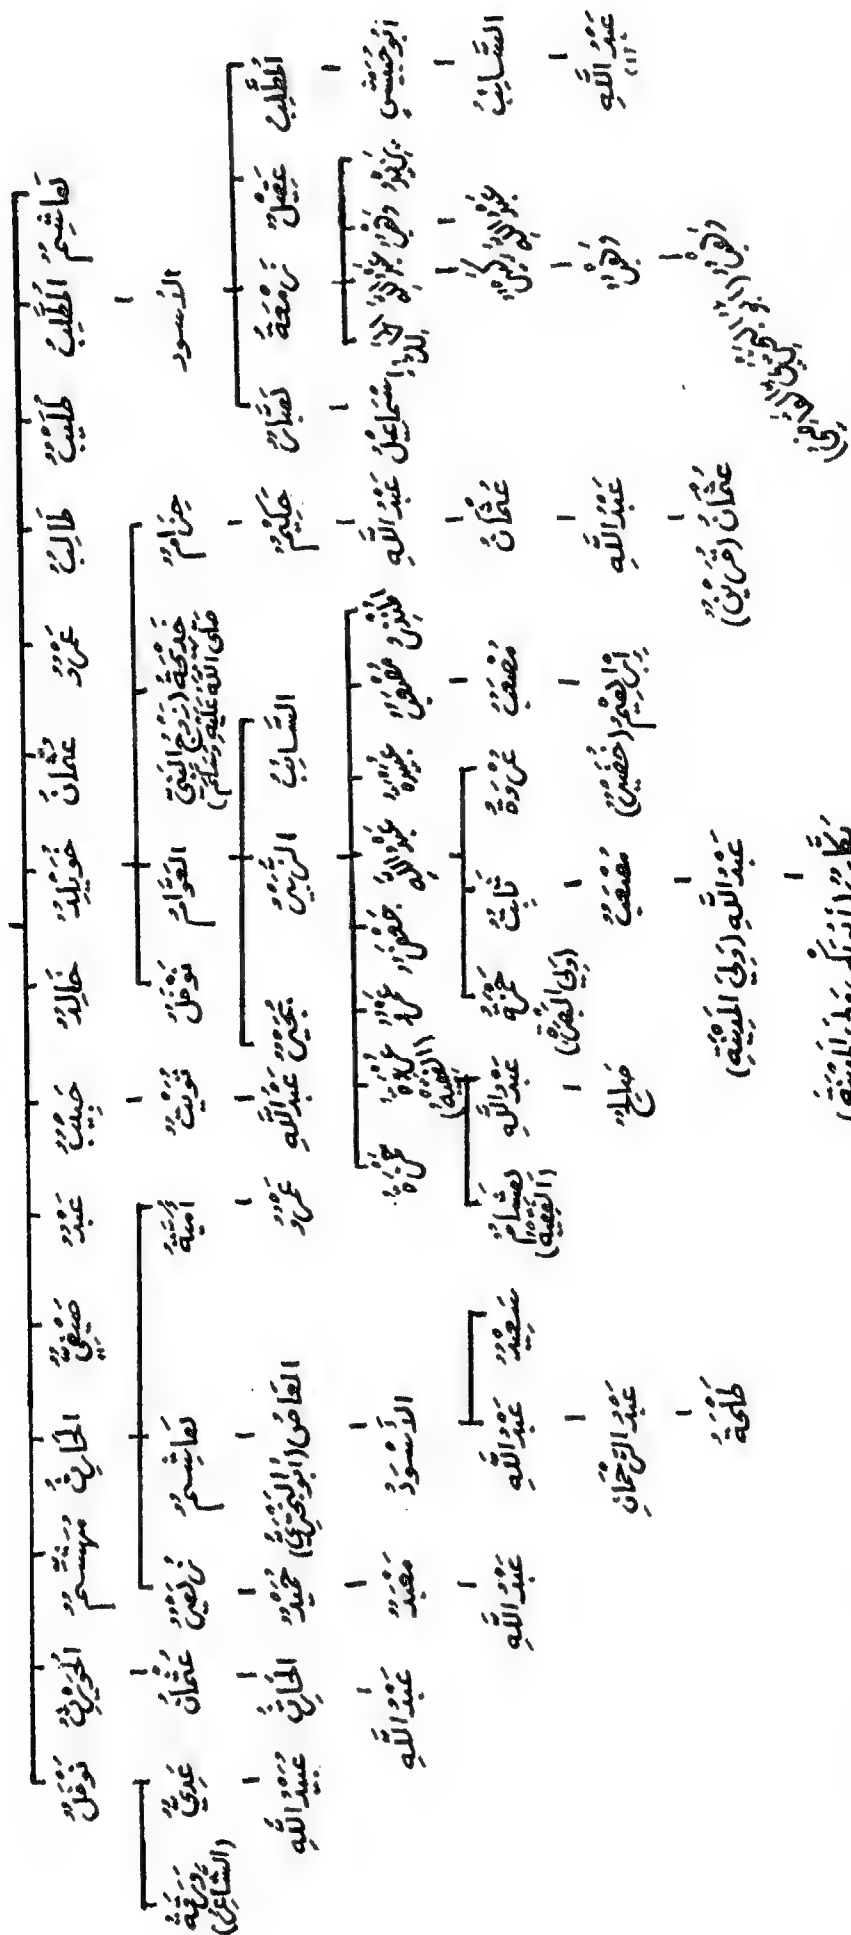 هَاشِمٌ المُطَّلِبُ طُلَيْبٌ طَالِبٌ عَمْرٌو عُثْمَانُ خُوَيْلِدٌ خَالِدٌ حَبِيبٌ عَبْدٌ صَيْفِيٌّ الحَارِثُ مُهَشِّمٌ الحُوَيْرِثُ نَوْفَلٌ
الأَسْوَد حِزَامٌ خَدِيجَةُ (زَوْجُ النَّبِيِّ صَلَّى اللهُ عَلَيْهِ وَسَلَّمَ) العَوَّامُ نَوْفَلٌ تُوَيْتٌ أُمَيَّةُ هَاشِمٌ زُهَيْرٌ عُثْمَانُ عَدِيٌّ وَرَقَةُ (الشَّاعِرُ)
المُطَّلِبُ عَقِيلٌ زَمْعَةُ هَبَّارٌ حَكِيمٌ السَّائِبُ الزُّبَيْرُ بُجَيْرٌ عَبْدُ اللَّهِ عَمْرٌو العَاصُ (أَبُو البَخْتَرِيِّ) حُمَيْدٌ الحَارِثُ عُبَيْدُ اللَّهِ
أَبُو حُبَيْشٍ يَزِيدُ وَهْبٌ عَبْدُ اللَّهِ إِسْمَاعِيلُ عَبْدُ اللَّهِ المُنْذِرُ مُصْعَبٌ عُبَيْدَةُ عَبْدُ اللَّهِ جَعْفَرٌ عَمْرٌو عُرْوَةُ الأَسْوَدُ مَعْبَدٌ عَبْدُ اللَّهِ
السَّائِبُ عَبْدُ اللَّهِ عُثْمَانُ مُصْعَبٌ عُرْوَةُ ثَابِتٌ حَمْزَةُ (وَلِيَ البَصْرَةَ) عَبْدُ اللَّهِ هِشَامٌ (الفَقِيهُ) سَعِيدٌ عَبْدُ اللَّهِ عَبْدُ اللَّهِ
عَبْدُ اللَّهِ (١) وَهْبٌ عَبْدُ اللَّهِ إِبْرَاهِيمُ (خُضَيْرٌ) مُصْعَبٌ صَالِحٌ عَبْدُ الرَّحْمَانِ
وَهْبٌ عُثْمَانُ عَبْدُ اللَّهِ (وَلِيَ المَدِينَةَ) طَلْحَةُ